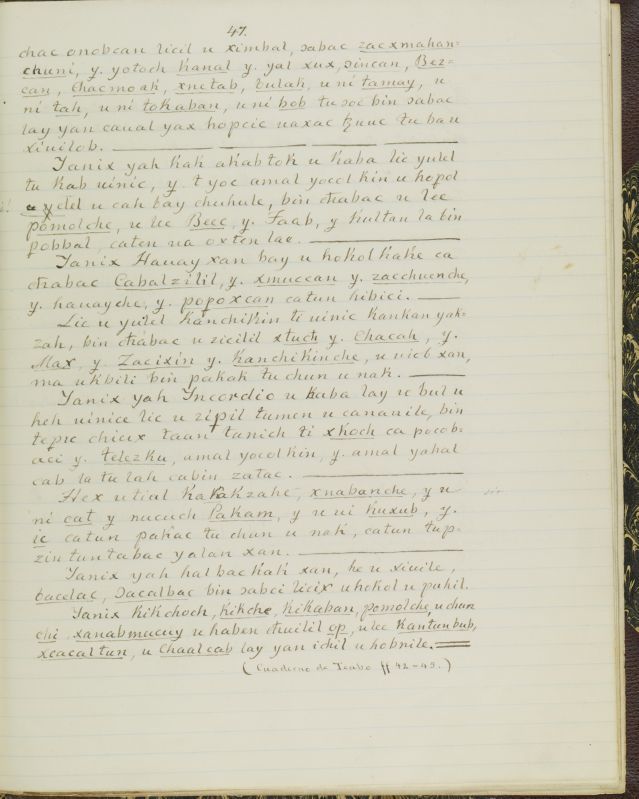 47.
chac onobcan licil u ximbal, sabac zacxmahan=
chuni, y. yotoch Kanal y. yal xux, sincan, Bez=
can, Chacmoak, xnetab, bulah, u ni tamay, u
ni tah, u ni tokaban, u ni bob tu soc bin sabac
lay yan canal yax hopcic uaxac tzuuc tu ba u
xiuilob.
Yanix yah kak akab tok u kaba lic yulel
tu kab uinic, y. t yoc amal yocol kin u hopol
u y elel u cah bay chuhule, bin chabac u lec
pomolche, u lec Beec, y. Faab, y kultau la bin
pobbal, caten ua oxten lae.
Yanix Hauay xan bay u hokol kake ca
chabac Cabalzilil, y. xmuccan y. zacchuenche,
y. hauayche, y. popoxcan catun hibici.
Lic u yulel Kanchikin ti uinic kankan yak=
zah, bin chabac u zicilil xtuch y. Chacah, y.
Max, y. Zacixin y. Kanchikinche, u uich xan,
ma ukbili bin pakak tu chun u nak.
Yanix yah Yncordio u kaba lay u bul u
heh uinice lic u zipil tumen u cananile, bin
tepic chicix taan tanich ti xkoch ca pocob=
aci y. telezku, amal yocol kin, y. amal yahal
cab la tu lah cabin zatac.
Hex u tial Kakakzahe, xnabanche, y u
ni cat y nucuch Pakam, y u ni Kuxub, y.
ic catun pakac tu chun u nak, catun tup=
zin tun tabac yalan xan.
Yanix yah hal bac kak xan, he u xiuile,
bacelac, sacalbac bin sabci licix u hokol u puhil.
Yanix Kikchoch, Kikche, Kikaban, pomolche, u chun
chi, xanabmucuy u haben chuilil op, u lec Kantunbub,
xcacaltun, u Chaalcab lay yan ichil u hobnile.
(Cuaderno de Teabo ff 42-45.)